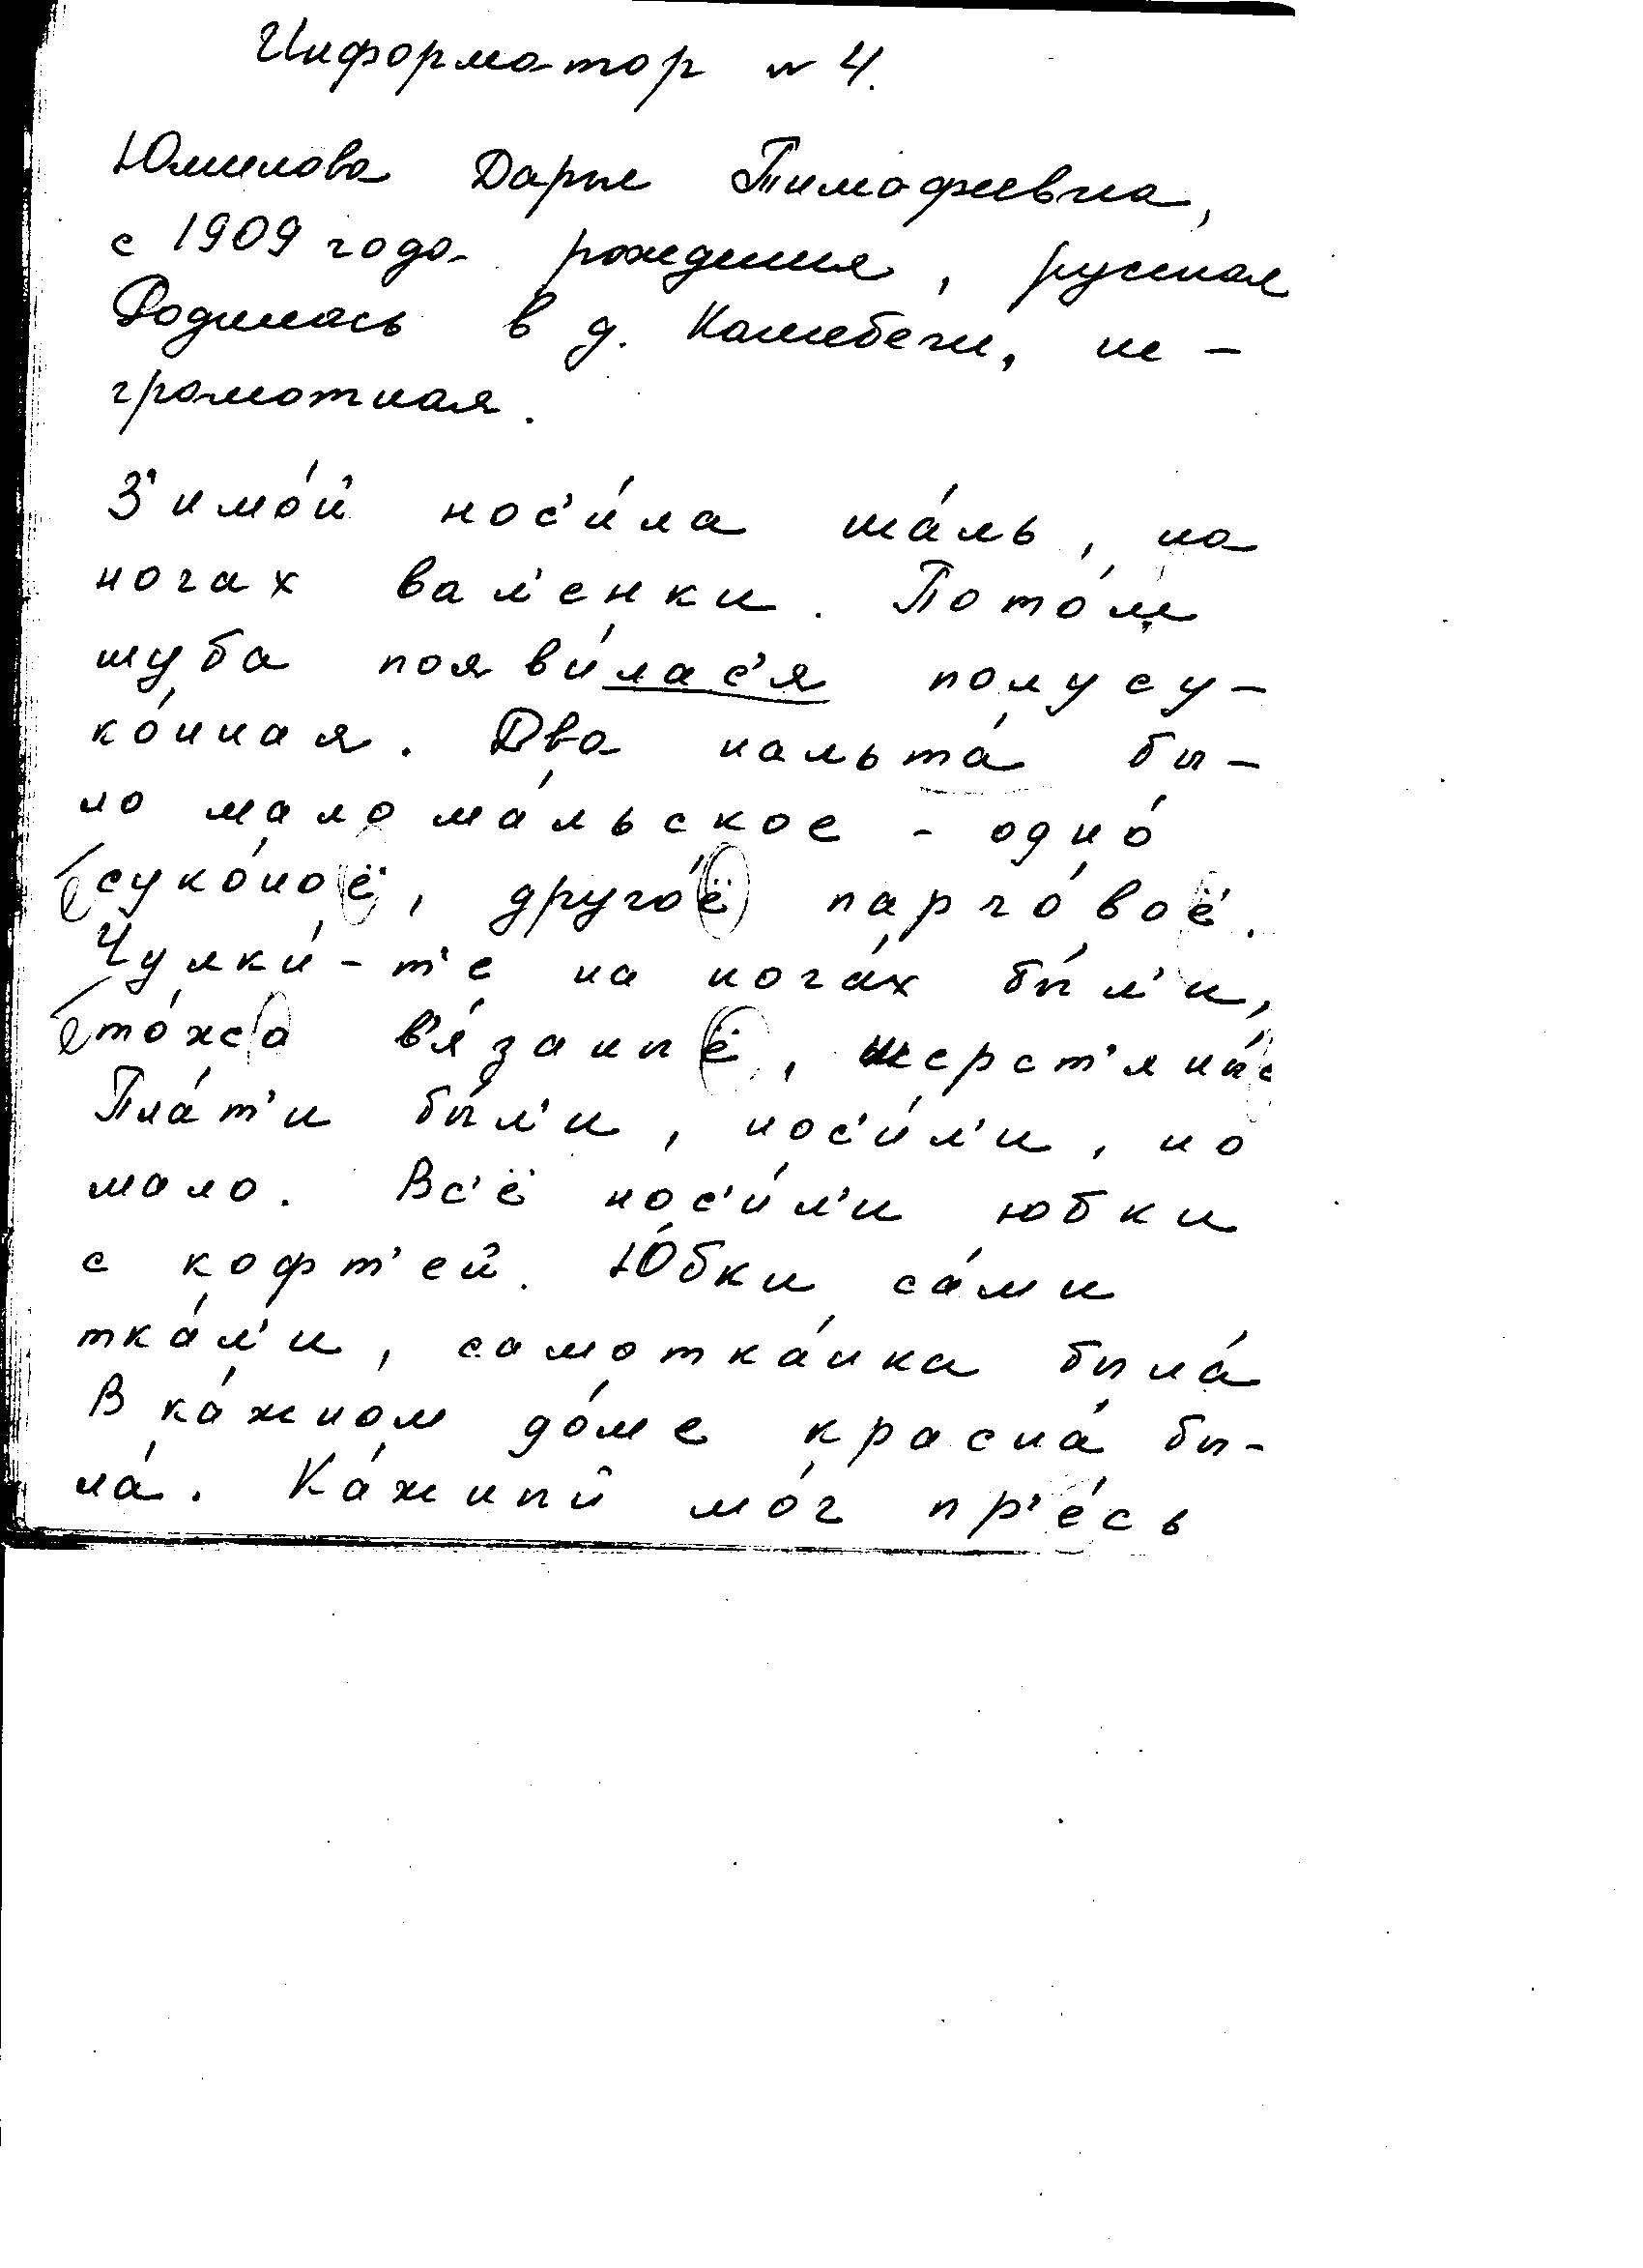 Информатор № 4.
Юмилова Дарья Тимофеевна,
с 1909 года рождения, русская
Родилась в д. Камебечи, не-
грамотная.
З'имо́й нос'и́ла ша́ль, на
ногах вал'енки. Пото́м
шуба появи́лас'я полусу-
ко́нная. Два пальта́ бы-
ло малома́льское - одно́
суко́ноё, друго́ё парчо́воё.
Чулки́-т'е на нога́х бы́л'и,
то́жо вя́заныё, шерст'яны́е
Пла́т'и бы́л'и, нос'и́л'и, но
мало. Вс'ё нос'и́л'и юбки
с кофт'ей. Ю́бки са́ми
тка́л'и, самотка́нка была́
В ка́жном до́ме красна́ бы-
ла́. Ка́жный мо́г пр'е́сь